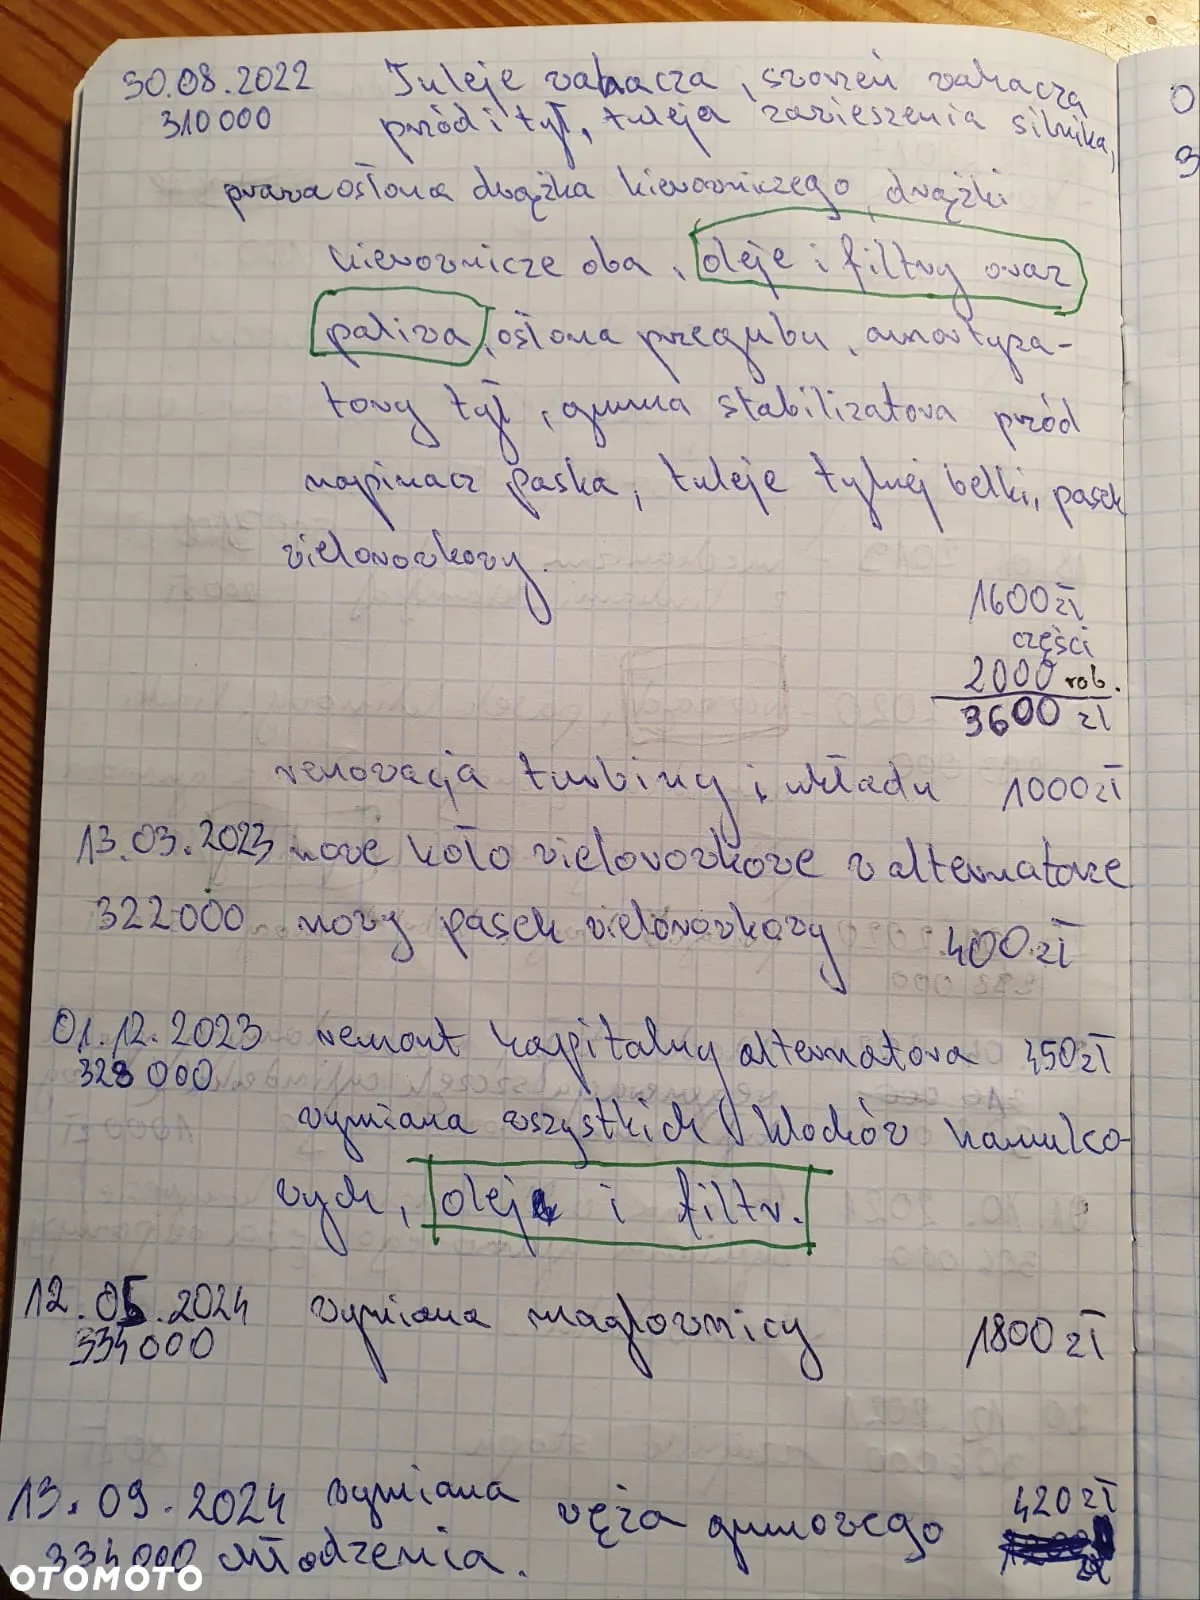 30.08.2022 Tuleje wahacza, sworzeń wahacza
310 000 przód i tył, tuleja zawieszenia silnika,
prawa osłona drążka kierowniczego, drążki
kierownicze oba, oleje i filtry oraz
paliwa, osłona przegubu, amortyza-
tory tył, guma stabilizatora przód
napinacz paska, tuleje tylnej belki, pasek
wielorowkowy.
1600 zł
części
2000 rob.
3600 zł
renowacja turbiny i układu 1000 zł
13.03.2023 nowe koło wielorowkowe w alternatorze
322000 nowy pasek wielorowkowy 400 zł
01.12.2023 remont kapitalny alternatora 450 zł
328 000
wymiana wszystkich klocków hamulco-
wych, olej i filtr.
12.05.2024 wymiana maglownicy 1800 zł
334000
13.09.2024 wymiana węża gumowego 420 zł
334000 chłodzenia.
OTOMOTO